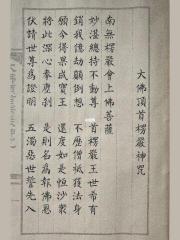 大佛頂首楞嚴神咒
南無楞嚴會上佛菩薩
妙湛總持不動尊 首楞嚴王世希有
銷我億劫顛倒想 不歷僧祇獲法身
願今得果成寶王 還度如是恒沙眾
將此深心奉塵剎 是則名為報佛恩
伏請世尊為證明 五濁惡世誓先入